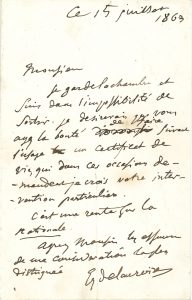 Ce 15 juillet
1863
Monsieur
Je garde la chambre et
suis dans l'impossibilité de
sortir. Je désirerais de vous
la bonté de faire suivant
l'usage un certificat de
vie, qui dans ces occasions de-
mandent je crois votre inter-
vention particulière.
C'est une rente sur la
Nationale
Agréez Monsieur les
de ma considération la plus
distinguée
Eug delacroix